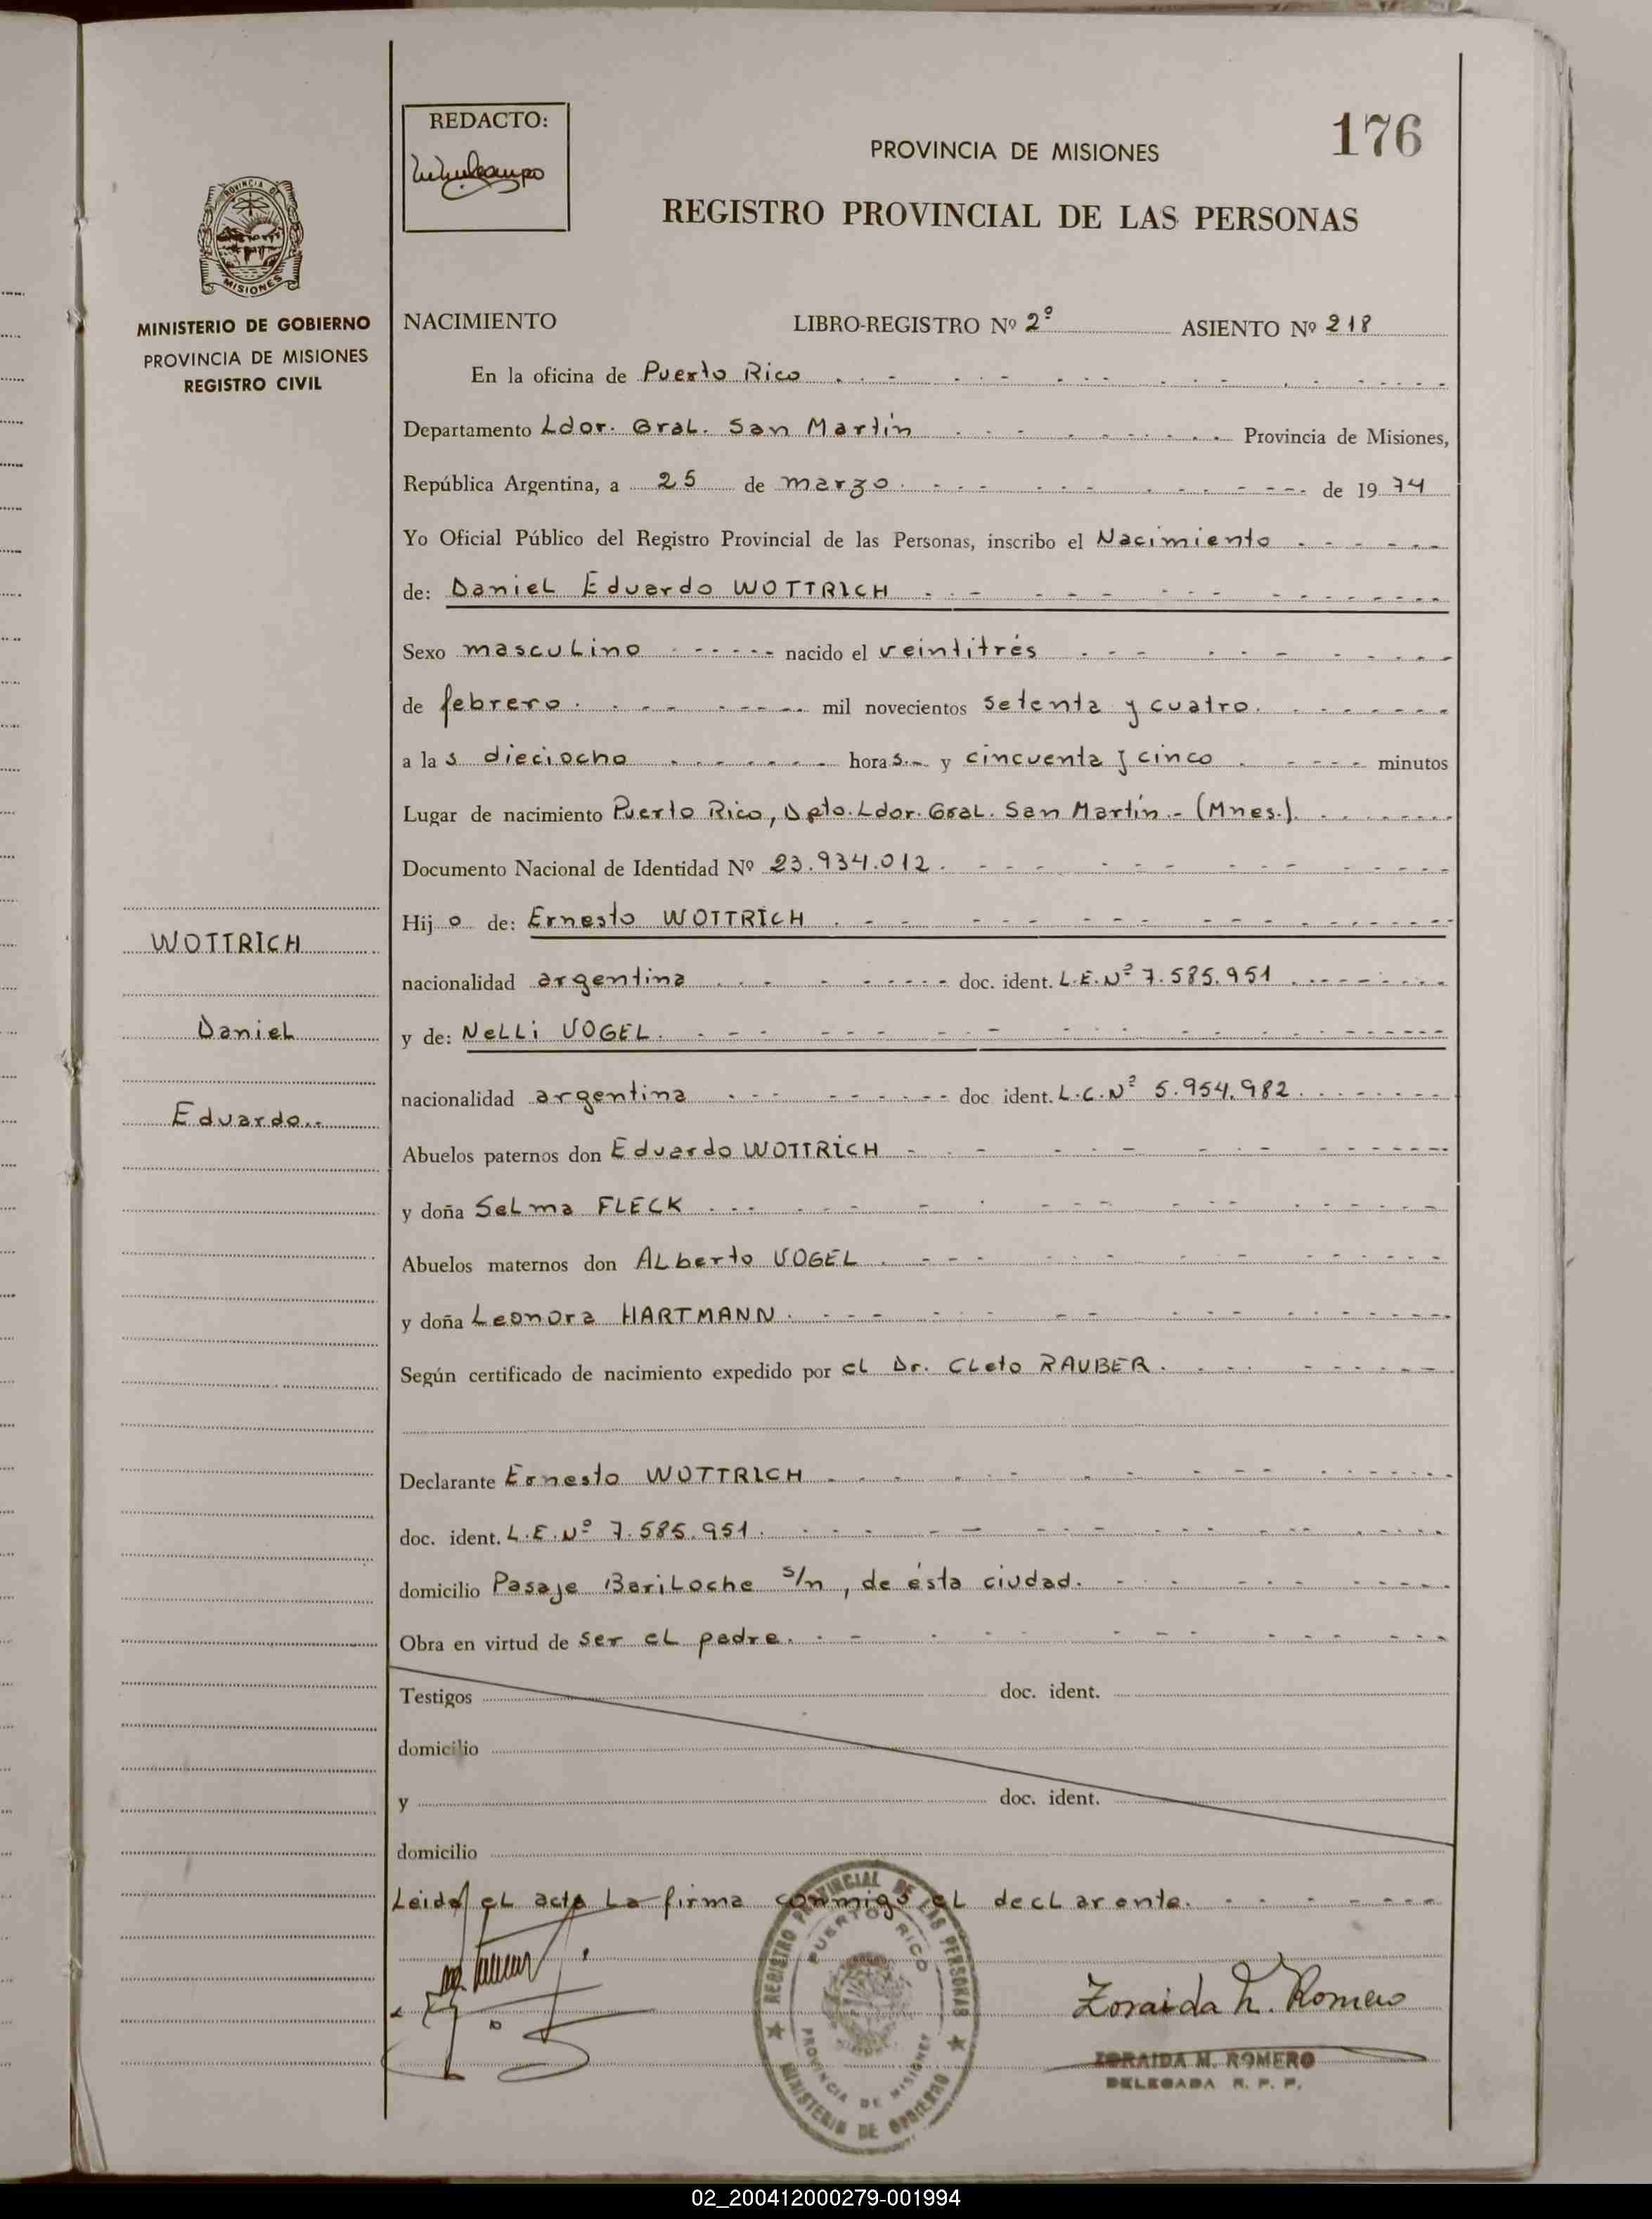 176
REDACTO:
PROVINCIA DE MISIONES
REGISTRO PROVINCIAL DE LAS PERSONAS
PROVINCIA DE
MISIONES
MINISTERIO DE GOBIERNO
PROVINCIA DE MISIONES
REGISTRO CIVIL
NACIMIENTO LIBRO-REGISTRO Nº 2º ASIENTO Nº 218
En la oficina de Puerto Rico
Departamento Ldor. Gral. San Martín Provincia de Misiones,
República Argentina, a 25 de marzo. de 19 74
Yo Oficial Público del Registro Provincial de las Personas, inscribo el Nacimiento
de: Daniel Eduardo WOTTRICH
Sexo masculino nacido el veintitrés
de febrero. mil novecientos setenta y cuatro.
a las dieciocho horas.- y cincuenta y cinco minutos
Lugar de nacimiento Puerto Rico, Dpto. Ldor. Gral. San Martín.- (Mnes.).
Documento Nacional de Identidad Nº 23.934.012.
Hijo de: Ernesto WOTTRICH
nacionalidad argentina doc. ident. L.E.Nº 7.585.951
y de: Nelli VOGEL.
nacionalidad argentina doc ident. L.C.Nº 5.954.982.
Abuelos paternos don Eduardo WOTTRICH
y doña Selma FLECK
Abuelos maternos don Alberto VOGEL
y doña Leonora HARTMANN.
Según certificado de nacimiento expedido por el Dr. Cleto RAUBER.
Declarante Ernesto WOTTRICH
doc. ident. L.E.Nº 7.585.951.
domicilio Pasaje Bariloche s/n, de ésta ciudad.
Obra en virtud de ser el padre.
Testigos doc. ident.
domicilio
y doc. ident.
domicilio
Leida el acta La firma conmigo el declarante.
WOTTRICH
Daniel
Eduardo..
REGISTRO PROVINCIAL DE LAS PERSONAS
PUERTO RICO
PROVINCIA DE MISIONES
MINISTERIO DE GOBIERNO
Zoraida M. Romero
ZORAIDA M. ROMERO
DELEGADA R. P. P.
02_200412000279-001994